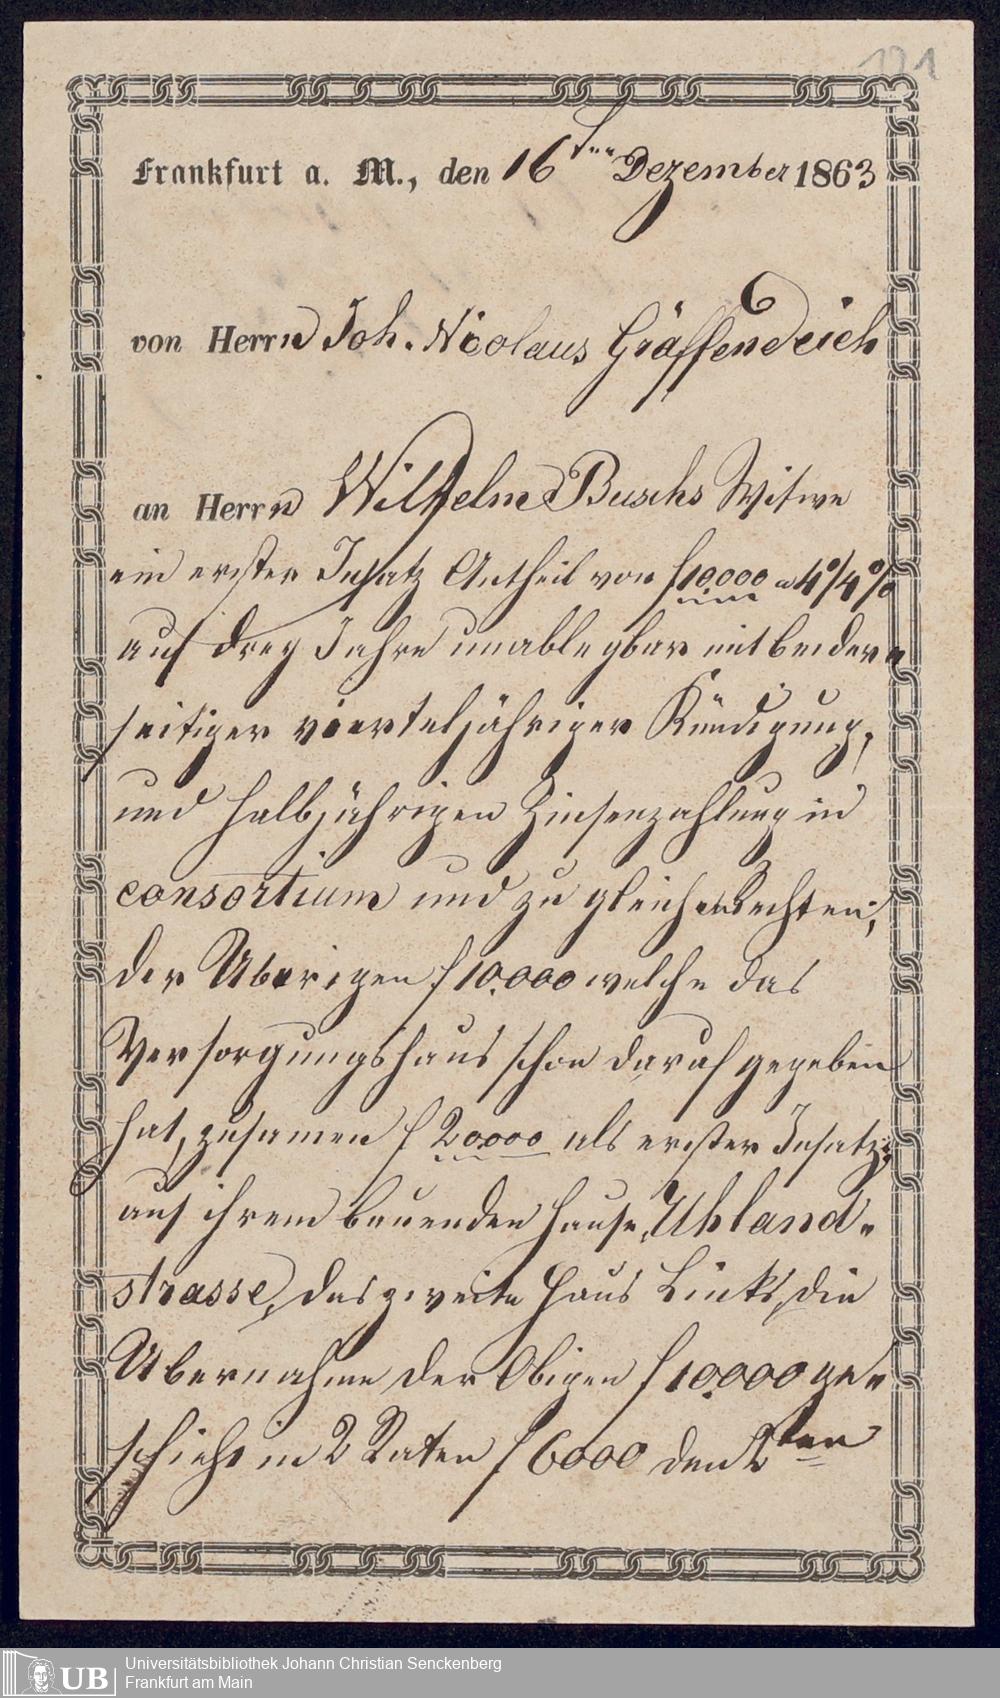 121
Frankfurt a. M., den 16ten Dezember 1863
von Herrn Joh. Nicolaus Gräffendeich
an Herrn Wilhelm Buschs Witwe
ein erster Insatz Antheil von f 10.000 a 4 1/4 %
auf drey Jahre unablegbar mit beider=
seitiger vierteljähriger Kündigung,
und halbjährigen Zinsenzahlung in
consortium und zu gleichen Rechten,
der Uberigen f 10.000 welche das
Versorgungshaus schon daruf gegeben
hat, zusamen f 20000 als erster Insatz,
auf ihrem bauenden Hause, Uhland=
strasse, das zweite Haus Links, die
Ubernahme der Obigen f 10.000 ge=
schieht in 2 Raten f 6000 den 2ten
UB
Universitätsbibliothek Johann Christian Senckenberg
Frankfurt am Main